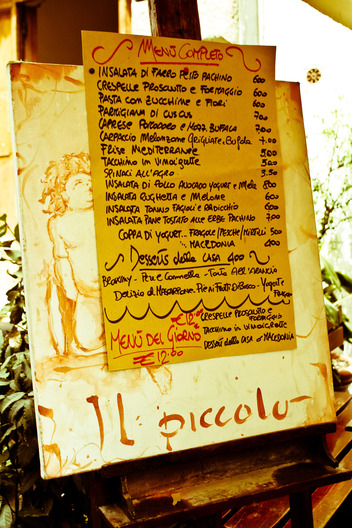 MENÙ COMPLETO
INSALATA DI FARRO PESTO PACHINO 600
CRESPELLE PROSCIUTTO E FORMAGGIO 600
PASTA CON ZUCCHINE E FIORI 600
PARMIGIANA DI CUS CUS 700
CAPRESE POMODORO E MOZZ. BUFALA 700
CARPACCIO MELANZANE GRIGLIATE E BUFALA 7.00
FRISE MEDITERRANEE 5.00
TACCHINO IN VINAIGRETTE 5.50
SPINACI ALL'AGRO 3.50
INSALATA DI POLLO AVOCADO YOGURT E MELA 800
INSALATA RUGHETTA E MELONE 600
INSALATA TONNO FAGIOLI E RADICCHIO 600
INSALATA PANE TOSTATO ALLE ERBE PACHINO 700
COPPA DI YOGURT - FRAGOLE/PESCHE/MIRTILLI 500
" MACEDONIA 400
Desserts della CASA 400
BROWNY - PERE E CANNELLA - TORTA ALL'ARANCIO
DELIZIA DI MASCARPONE - PIE AI FRUTTI DI BOSCO - YOGURT E FRAGOLE
MENÙ DEL GIORNO
€ 12.00
CRESPELLE PROSCIUTTO E FORMAGGIO
TACCHINO IN VINAIGRETTE
DESSERT DELLA CASA O MACEDONIA
€ 12.00
IL piccolo